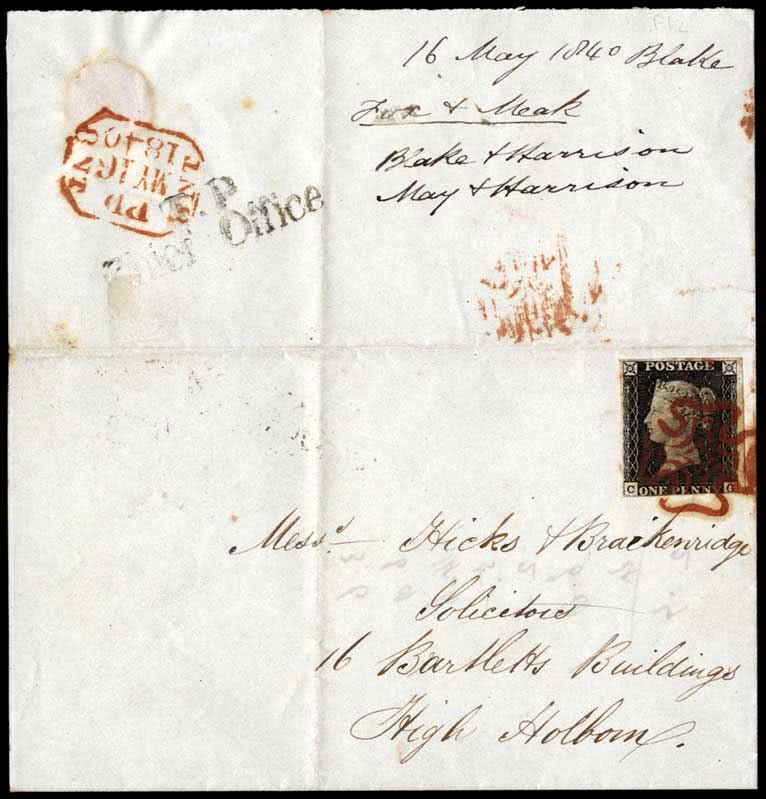 16 May 1840 Blake
Fox & Meak
Blake & Harrison
May & Harrison
T.P
Chief Office
PD
MY 16
1840
POSTAGE
C ONE PENNY G
Messrs. Hicks & Brackenridge
Solicitors
16 Bartletts Buildings
High Holborn.